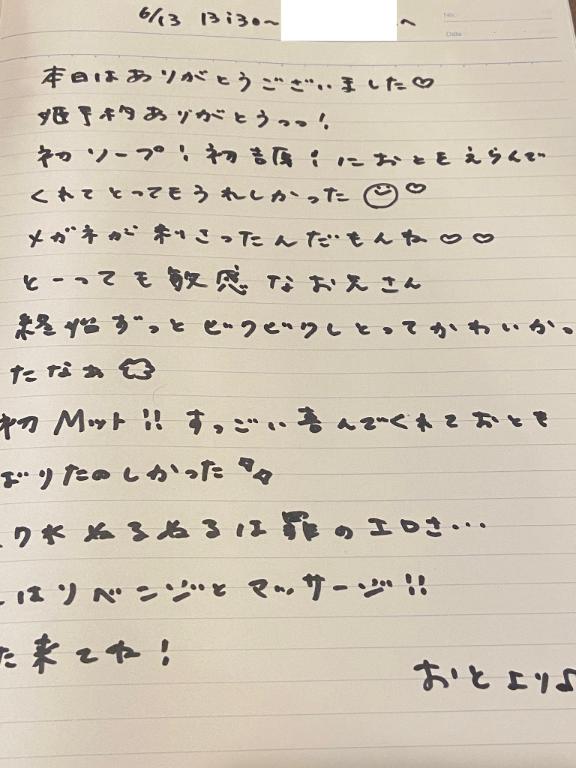 6/13 13:30〜 へ
No.
Date
本日はありがとうございました♡
姫予約ありがとうっっ!
初ソープ!初吉原!におとをえらんで
くれてとってもうれしかった☺♡
メガネが刺さったんだもんね♡♡
とーっても敏感なお兄さん
終始ずっとビクビクしとってかわいかっ
たなぁ
初Mット!!すっごい喜んでくれておとも
ばりたのしかった
ワホぬるぬるは罪のエロさ…
はリベンジとマッサージ!!
た来てね!
おとより♪